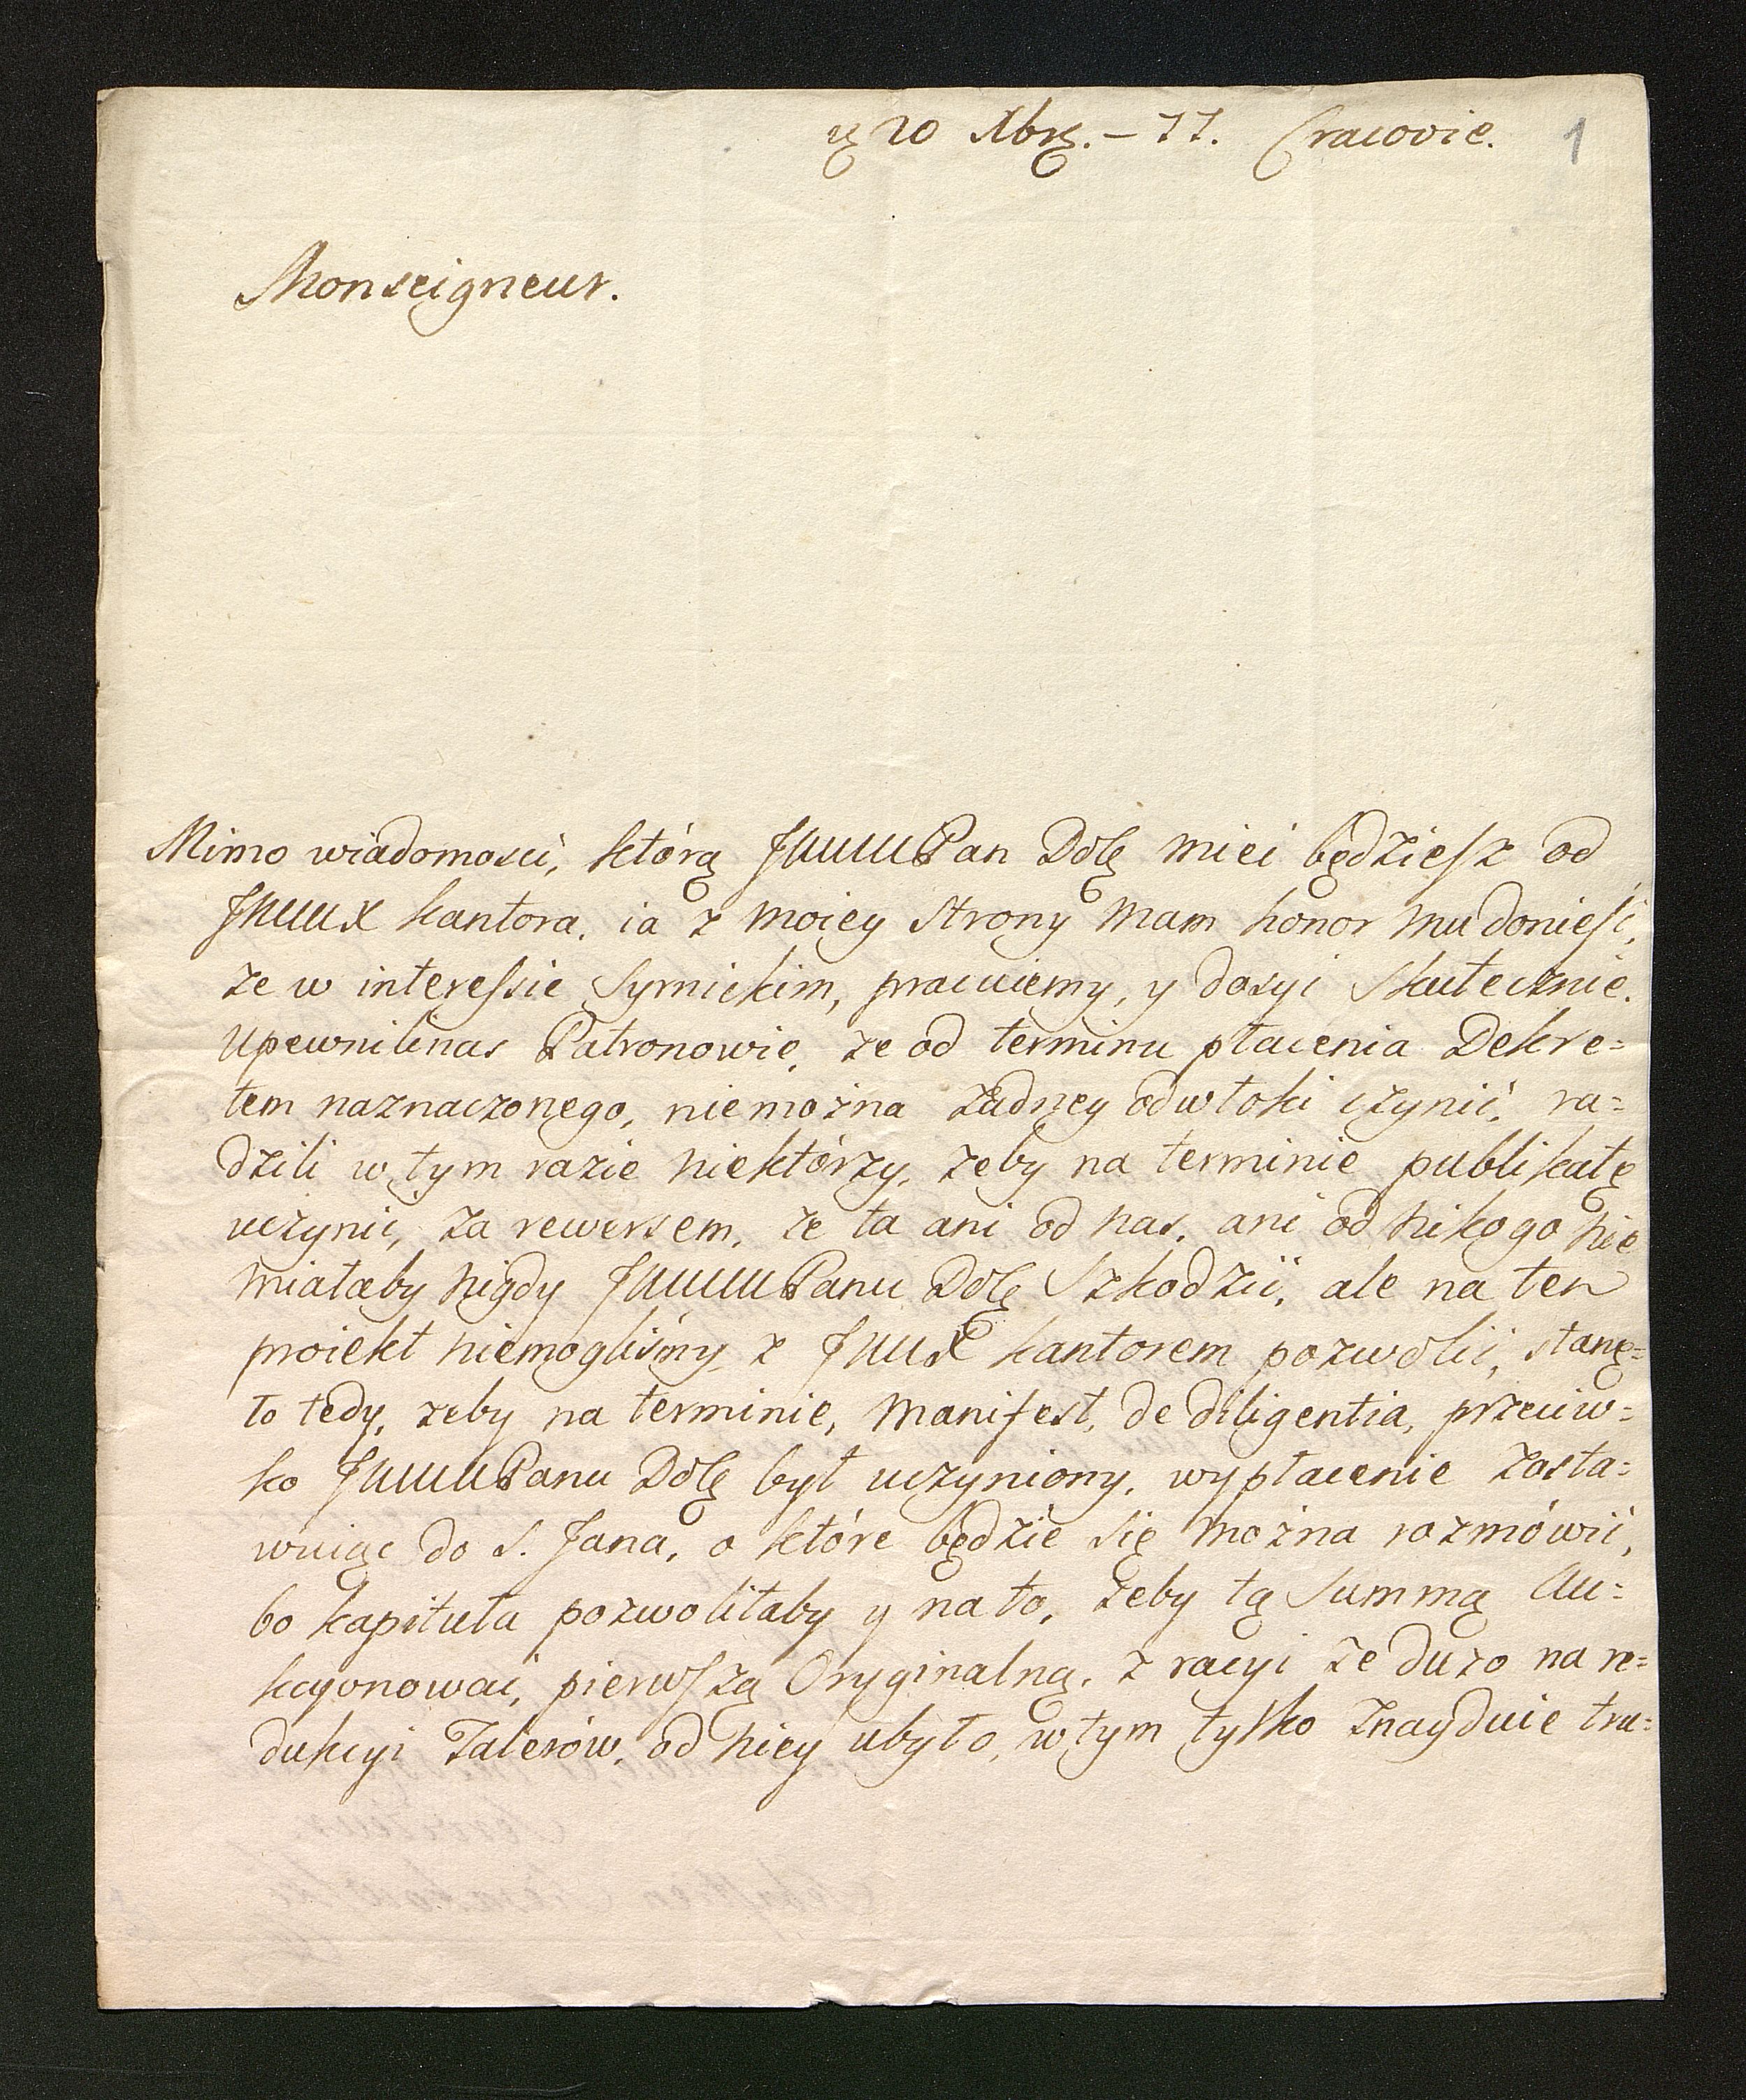 20 Xbrę. – 77. Cracovie. 1
Monseigneur.
Mimo wiadomosci, którą Pan Dóbę mieć będziesz od
kantora. ia z moiey strony mam honor mu donieść,
ze w interessie Symickim, pracuiemy, y dosyć skutecznie.
Upewnilinas Patronowie, ze od terminu płacenia Dekre=
tem naznaczonego, niemożna żadney odwłoki czynić, ra=
dzili w tym razie niektórzy, zeby na terminie publikatę
uczynić, za rewersem, ze ta ani od nas, ani od nikogo nie
miałaby nigdy Panu Dóbę szkodzić, ale na ten
proiekt niemogliśmy, z kantorem pozwolić, stanę=
ło tedy, zeby na terminie, manifest, de diligentia, przeciw=
ko Panu Dóbę był uczyniony, wypłacenie zosta=
wuiąc do S. Jana, o które będzie się można rozmówić,
bo kapituła pozwoliłaby y na to, żeby tą Summą Au=
kcyonować, pierwszą Oryginalną, z racyi ze duzo na re=
dukcyi Talerów, od niey ubyło, w tym tylko znayduie tru=